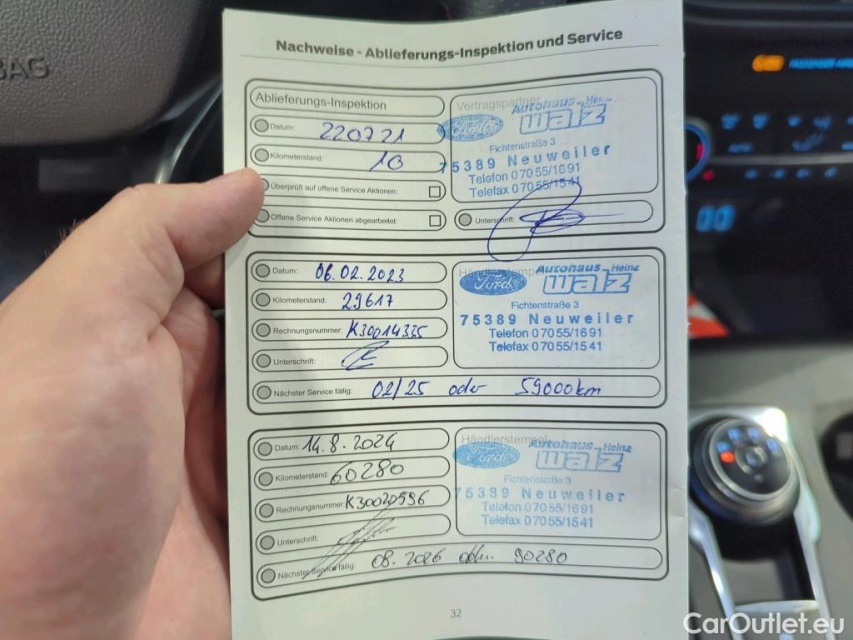 BAG
Nachweise - Ablieferungs-Inspektion und Service
Ablieferungs-Inspektion
Datum: 220721
Kilometerstand: 10
Überprüft auf offene Service Aktionen:
Offene Service Aktionen abgearbeitet:
Vertragspartner
Ford Autohaus Heinz
Walz
Fichtenstraße 3
75389 Neuweiler
Telefon 07055/1691
Telefax 07055/1541
Unterschrift:
Datum: 06.02.2023
Kilometerstand: 29617
Rechnungsnummer: K30014335
Unterschrift:
Nächster Service fällig: 02/25 oder 59000km
Händlerstempel
Ford Autohaus Heinz
Walz
Fichtenstraße 3
75389 Neuweiler
Telefon 07055/1691
Telefax 07055/1541
Datum: 14.8.2024
Kilometerstand: 60280
Rechnungsnummer: K30020596
Unterschrift:
Nächster Service fällig: 08.2026 oder 90280
Händlerstempel
Ford Autohaus Heinz
Walz
Fichtenstraße 3
75389 Neuweiler
Telefon 07055/1691
Telefax 07055/1541
32
CarOutlet.eu